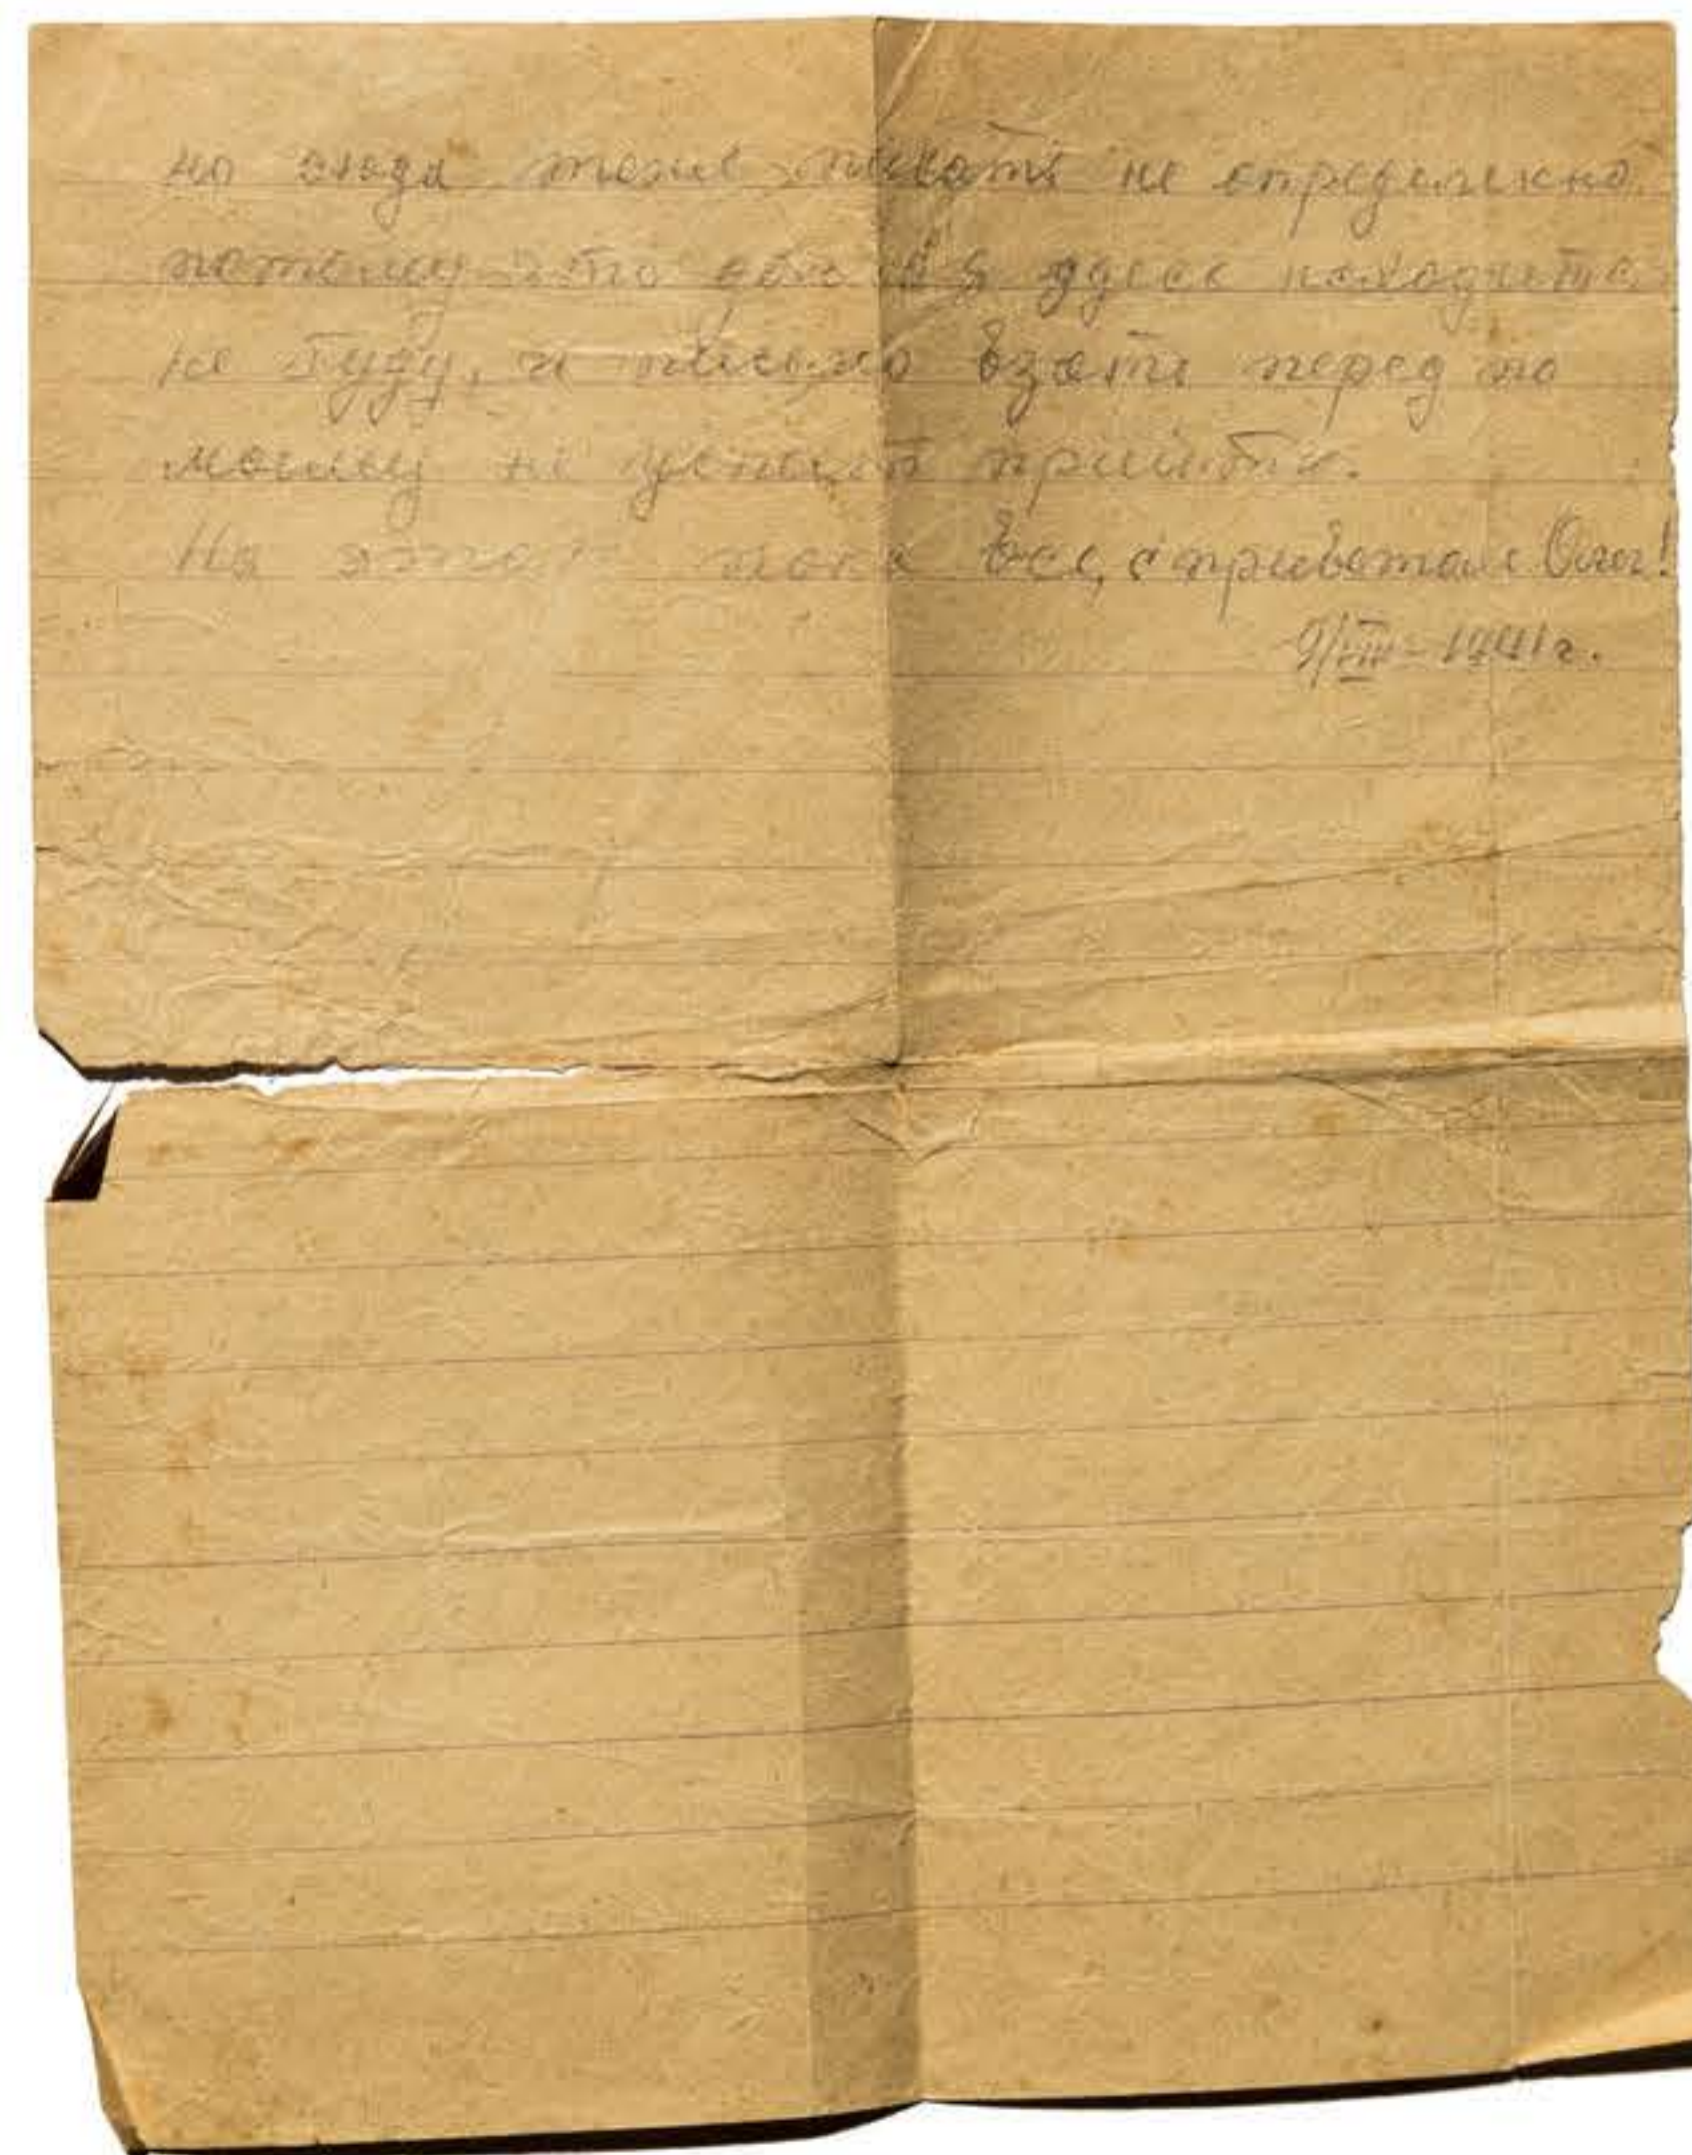 но сюда тоже писать не определенно
потому что здесь находится
не буду, и письмо взять перед по
моему не успеют прийти.
На этом пока все, с приветом Олег!
9/VIII-1941г.